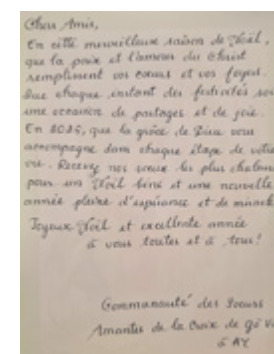 Chers Amis,
En cette merveilleuse saison de Noël,
que la paix et l'amour du Christ
remplissent vos cœurs et vos foyers.
Que chaque instant des festivités soi
une occasion de partages et de joie.
En 2025, que la grâce de Dieu vous
accompagne dans chaque étape de votre
vie. Recevez nos vœux les plus chaleur
pour un Noël béni et une nouvelle
année pleine d'espérance et de miracl
Joyeux Noël et excellente année
à vous toutes et à tous!
Communauté des Soeurs
Amantes de la Croix de Gò V
à